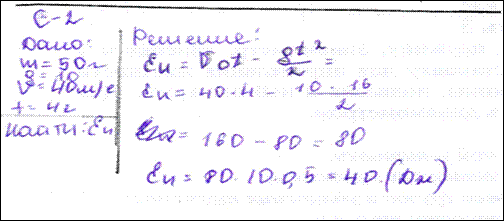 С-2
Дано:
m = 50 г
g = 10
V = 40 м/с
t = 4 с
Найти: Eп
Решение:
Eп = V₀t - gt²/2 =
Eп = 40·4 - 10·16/2
= 160 - 80 = 80
Eп = 80·10·0,5 = 40 (Дж)